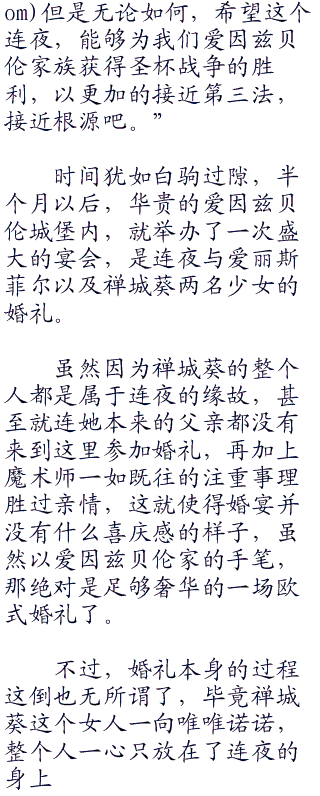 om)但是无论如何，希望这个
连夜，能够为我们爱因兹贝
伦家族获得圣杯战争的胜
利，以更加的接近第三法，
接近根源吧。”
时间犹如白驹过隙，半
个月以后，华贵的爱因兹贝
伦城堡内，就举办了一次盛
大的宴会，是连夜与爱丽斯
菲尔以及禅城葵两名少女的
婚礼。
虽然因为禅城葵的整个
人都是属于连夜的缘故，甚
至就连她本来的父亲都没有
来到这里参加婚礼，再加上
魔术师一如既往的注重事理
胜过亲情，这就使得婚宴并
没有什么喜庆感的样子，虽
然以爱因兹贝伦家的手笔，
那绝对是足够奢华的一场欧
式婚礼了。
不过，婚礼本身的过程
这倒也无所谓了，毕竟禅城
葵这个女人一向唯唯诺诺，
整个人一心只放在了连夜的
身上